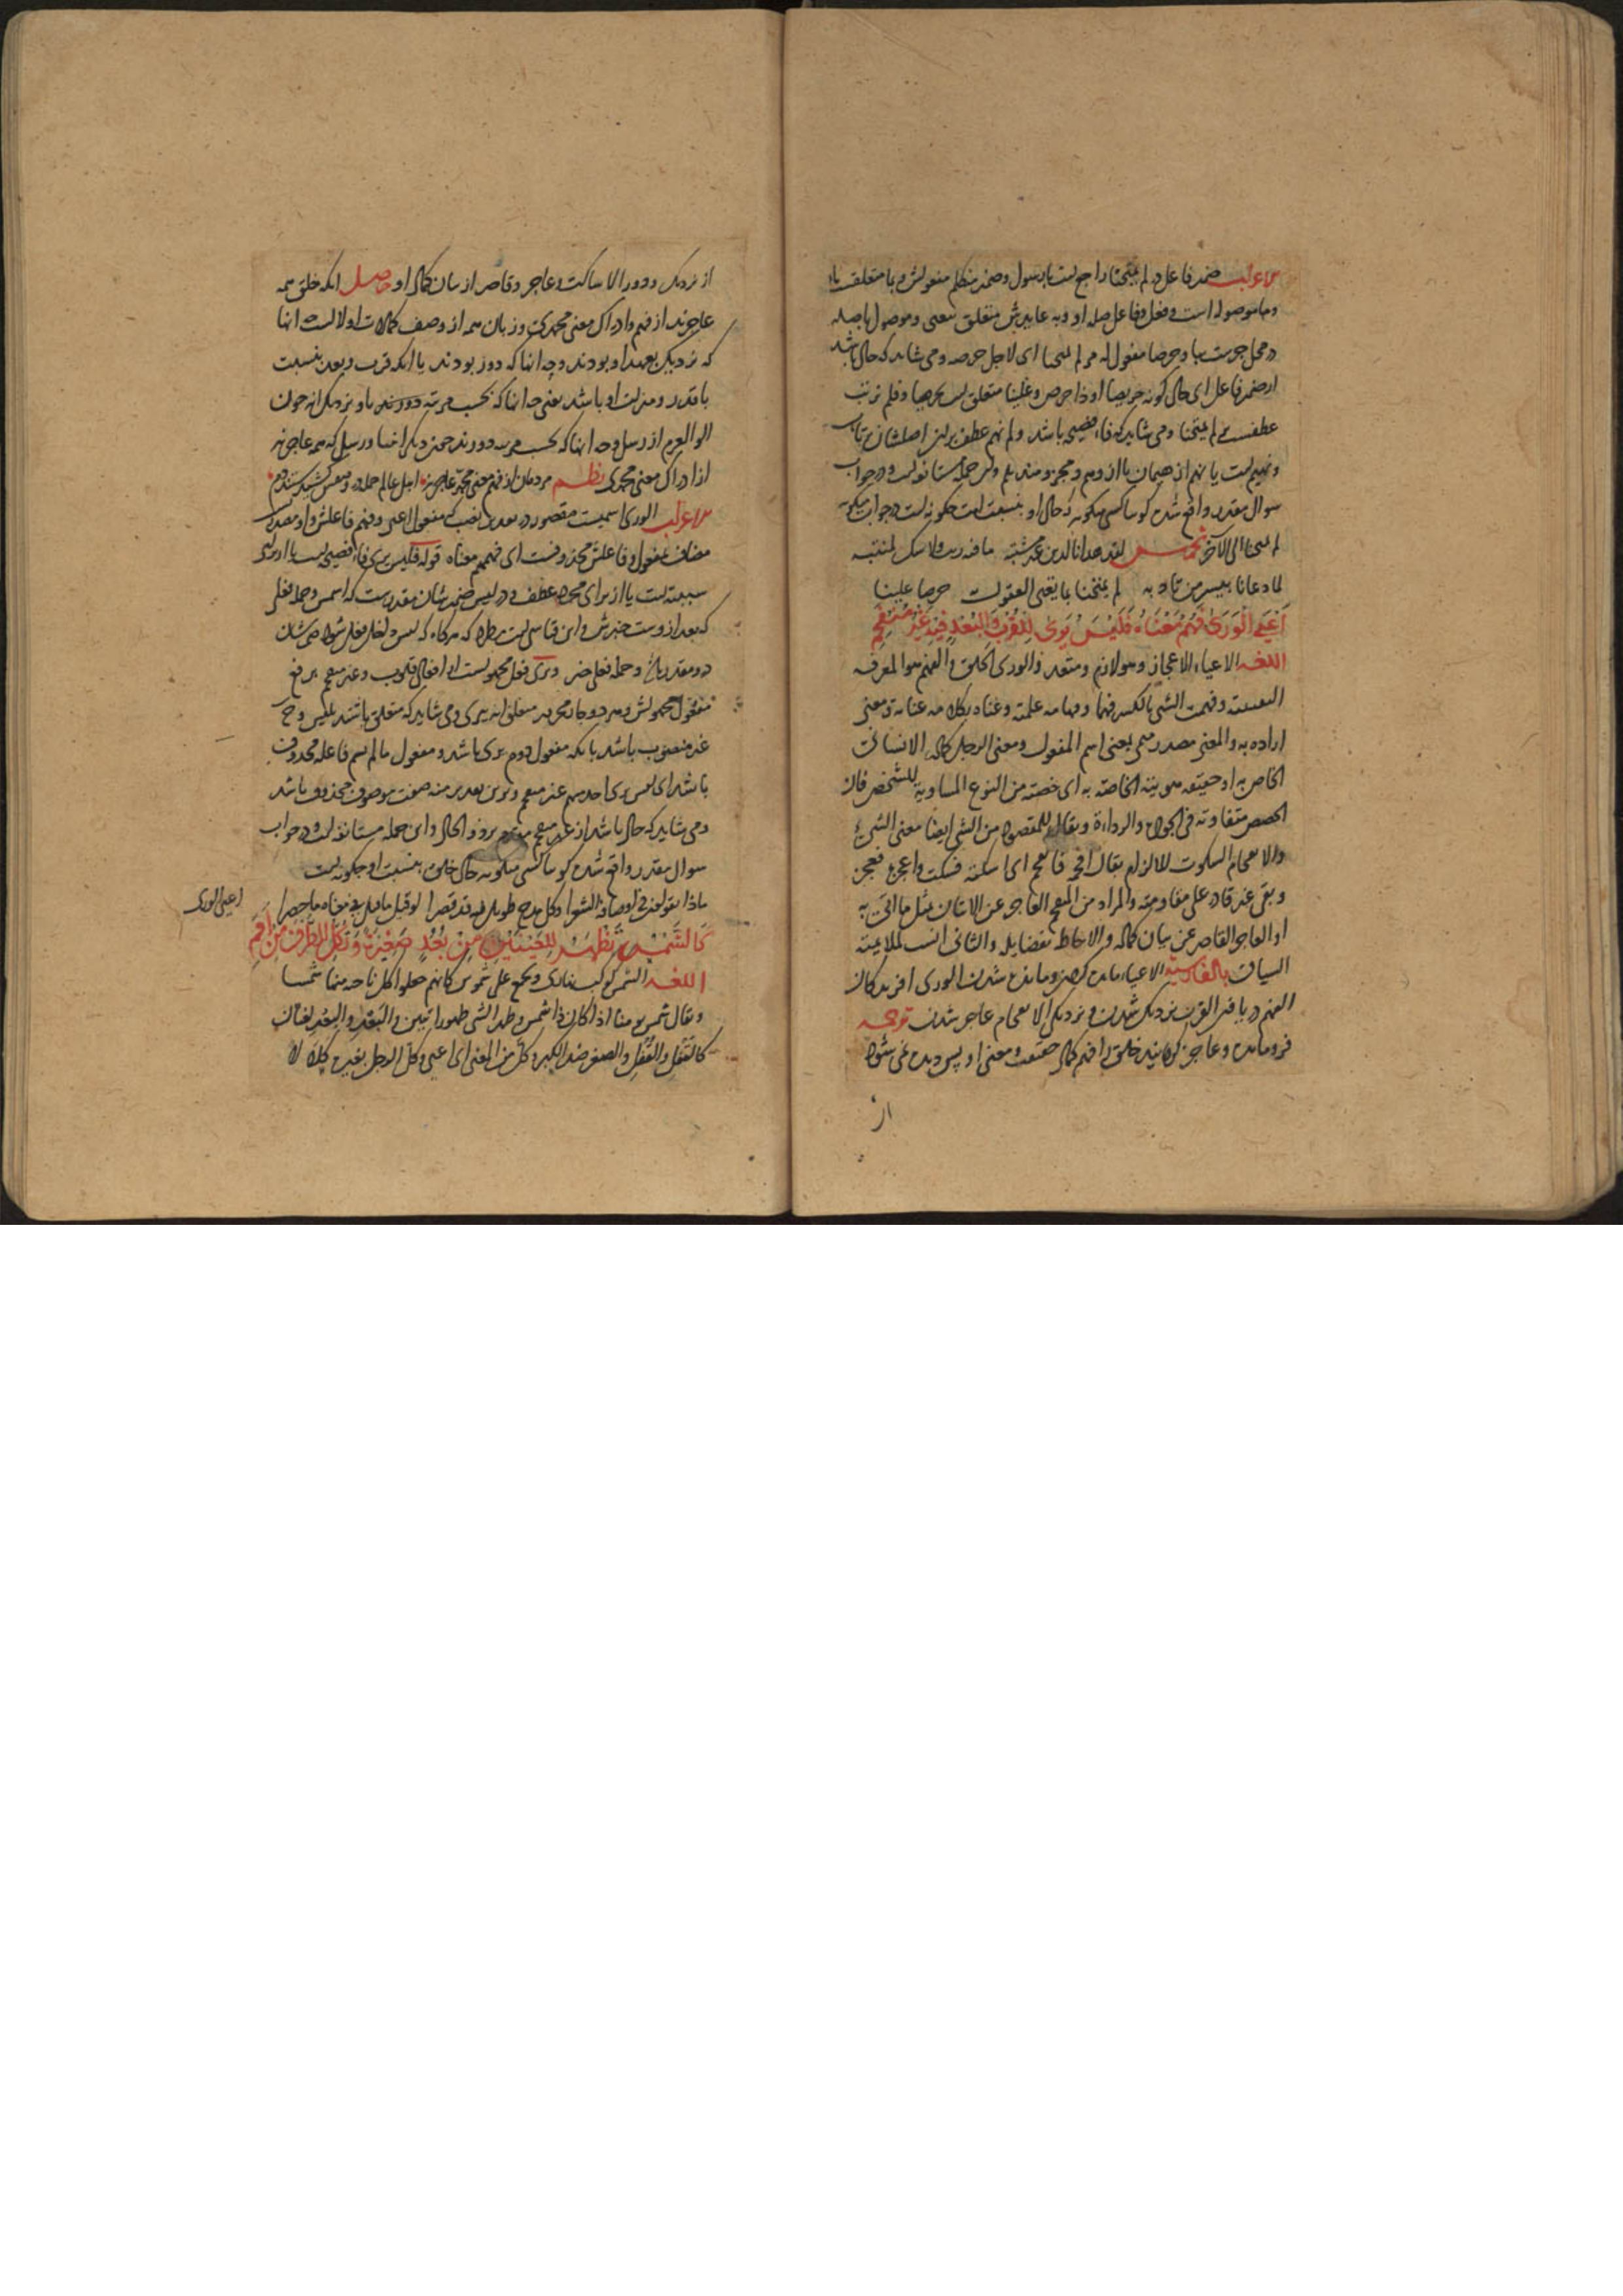 الاعراب ضمیر فاعل در لم یمتحنا راجع است بارسول و ضمیر متکلم مفعولش و با متعلقست با
و ما موصوله است و فعل و فاعل صله او و به عایدش متعلق بتعیی و موصول با صله
در محل جرست ببا و حرصا مفعول له مر لم یمتحنا ای لاجل حرصه و می شاید که حال باشد
از ضمیر فاعل ای حال کونه حریصا او ذا حرص و علینا متعلق است بحرصا و فلم نرتب
عطفست بر لم یمتحنا و می شاید که فاء فصیحه باشد و لم نهم عطف بر
سوال مقدر واقع شده کویا کسی میکوید که حال او بنسبت امت چکونه است در جواب میکوید
لم یمتحنا الی الآخر تخمیس لقد هدانا لدین غیر مشتبه ما فیه ریب ولا شک لمنتبه
لما دعانا بعیسر من تادبه لم یمتحنا بما تعیی العقول به حرصا علینا
اَعْیَی الْوَرَی فَهْمُ مَعْنَاهُ فَلَیْسَ یُرَی لِلْقُرْبِ وَالْبُعْدِ فِیهِ غَیْرُ مُنْفَحِمِ
اللغه الاعیاء الاعجاز وهو لازم ومتعد والوری الخلق والفهم هو المعرفه
وفهمت الشی بالکسر فهما وفهامه علمته وعناه بکلامه عنایة ومعنی
اراده به والمعنی مصدر میمی بمعنی اسم المفعول ومعنی الرجل کماله الانسانی
الخاص به او حقیقه هویته الخاصه به ای حصته من النوع المساویه للشخص فان
الحصص متفاوته فی الجودة والرداءة ویقال للمقصود من الشی ایضا معنی الشیء
والافحام السکوت للالزام یقال افحمه فانفحم ای اسکته فسکت واعجزه فعجز
وبقی غیر قادر علی مقاومته والمراد من المنفحم العاجز عن الاتیان بمثل ما اتی به
او العاجز القاصر عن بیان کماله والاحاطه بفضایله والثانی انسب لملایمته
السیاق بالفارسیة الاعیاء مانده کردن و مانده شدن الوری افریدکان
الفهم دریافتن القرب نزدیک شدن و نزدیکی الافحام عاجز شدن ترجمه
فرومانده و عاجز کردانید خلق را فهم کمال حقیقت و معنی او پس دیده نمی شود
از
از نزدیک و دور الا ساکت و عاجز و قاصر از بیان کمال او حاصل انکه خلق همه
عاجزند از فهم و ادراک معنی محمدی و زبان همه از وصف کمالات او لالست چه انها
که نزدیک بعهد او بودند و چه انها که دور بودند یا انکه قرب و بعد بنسبت
با قدر و منزلت او باشد یعنی چه انها که بحسب مرتبه باو نزدیک اند چون
الوالعزم از رسل و چه انها که بحسب مرتبه دورند چون دیکر انبیا و رسل که همه عاجزند
از ادراک معنی محمدی نظم مردمان از فهم معنی محمد عاجزند اهل عالم جمله در وصفش کشیدستند دم
الاعراب الوری اسمیست مقصور در تقدیر نصب که مفعول اعیی و فهم فاعلش و او مصدر
مضاف بمفعول و فاعلش محذوفست ای فهمهم معناه قوله فلیس یری فاء فصیحه است یا از برای
سببیتست یا از برای مجرد عطف و در لیس ضمیر شان مقدرست که اسمش و جمله فعلی
که بعد از وست خبرش و این قیاسی است مطرد که هرکاه که لیس داخل فعل شود ضمیر شان
درو مقدر باشد و جمله فعلی خبر و یری فعل مجهولست از افعال قلوب و غیر منفحم برفع
مفعول مجهولش و هر دو جار مجرور متعلق اند بیری و می شاید که متعلق باشند بلیس و ح
غیر منصوب باشد بانکه مفعول دوم یری باشد و مفعول ما لم یسم فاعله محذوف
باشد ای لیس یری احد منهم غیر منفحم
و می شاید که حال باشد از غیر منفحم مقدم بر ذو الحال و این جمله مستانفه است در جواب
سوال مقدر واقع شده کویا کسی میکوید حال خلق بنسبت او چکونه است
ماذا یقولون فی اوصافه الشعرا وکل مدح طویل فیه قد قصرا لو قیل ما قیل فی معناه ما حصرا
اعیی الوری
کَالشَّمْسِ تَظْهَرُ لِلْعَیْنَیْنِ مِنْ بُعُدٍ صَغِیرَةً وَتُکِلُّ الطَّرْفَ مِنْ اَمَمِ
اللغه الشمس کوکب نهاری وتجمع علی شموس کانهم جعلوا کل ناحیه منها شمسا
ویقال شمس یومنا اذا کان ذا شمس وظهر الشی ظهورا تبین والبُعْد والبُعُد لغتان
کالثقْل والثقُل والصغر ضد الکبر وکلّ من المعنی ای اعیی وکلّ الرجل بعیره کلالا